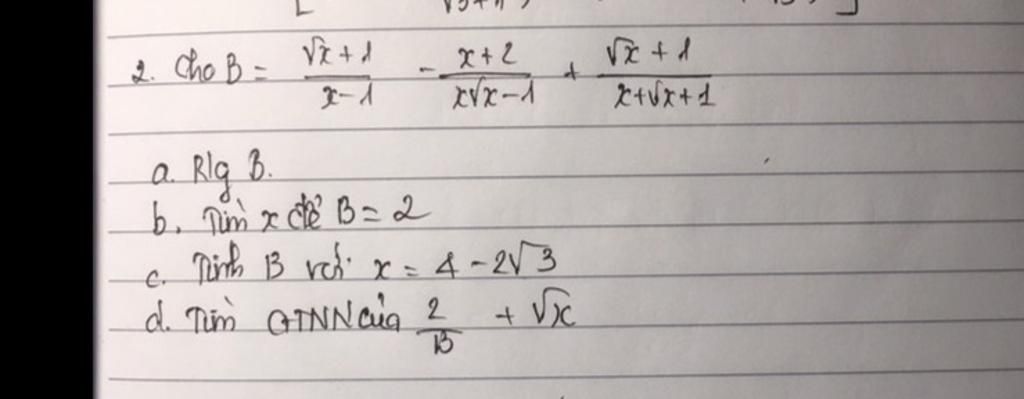 2. Cho B = \frac{√x + 1}{x - 1} - \frac{x + 2}{x√x - 1} + \frac{√x + 1}{x + √x + 1}
a. R/g B.
b. Tìm x để B = 2
c. Tính B với x = 4 - 2√3
d. Tìm GTNN của \frac{2}{B} + √x